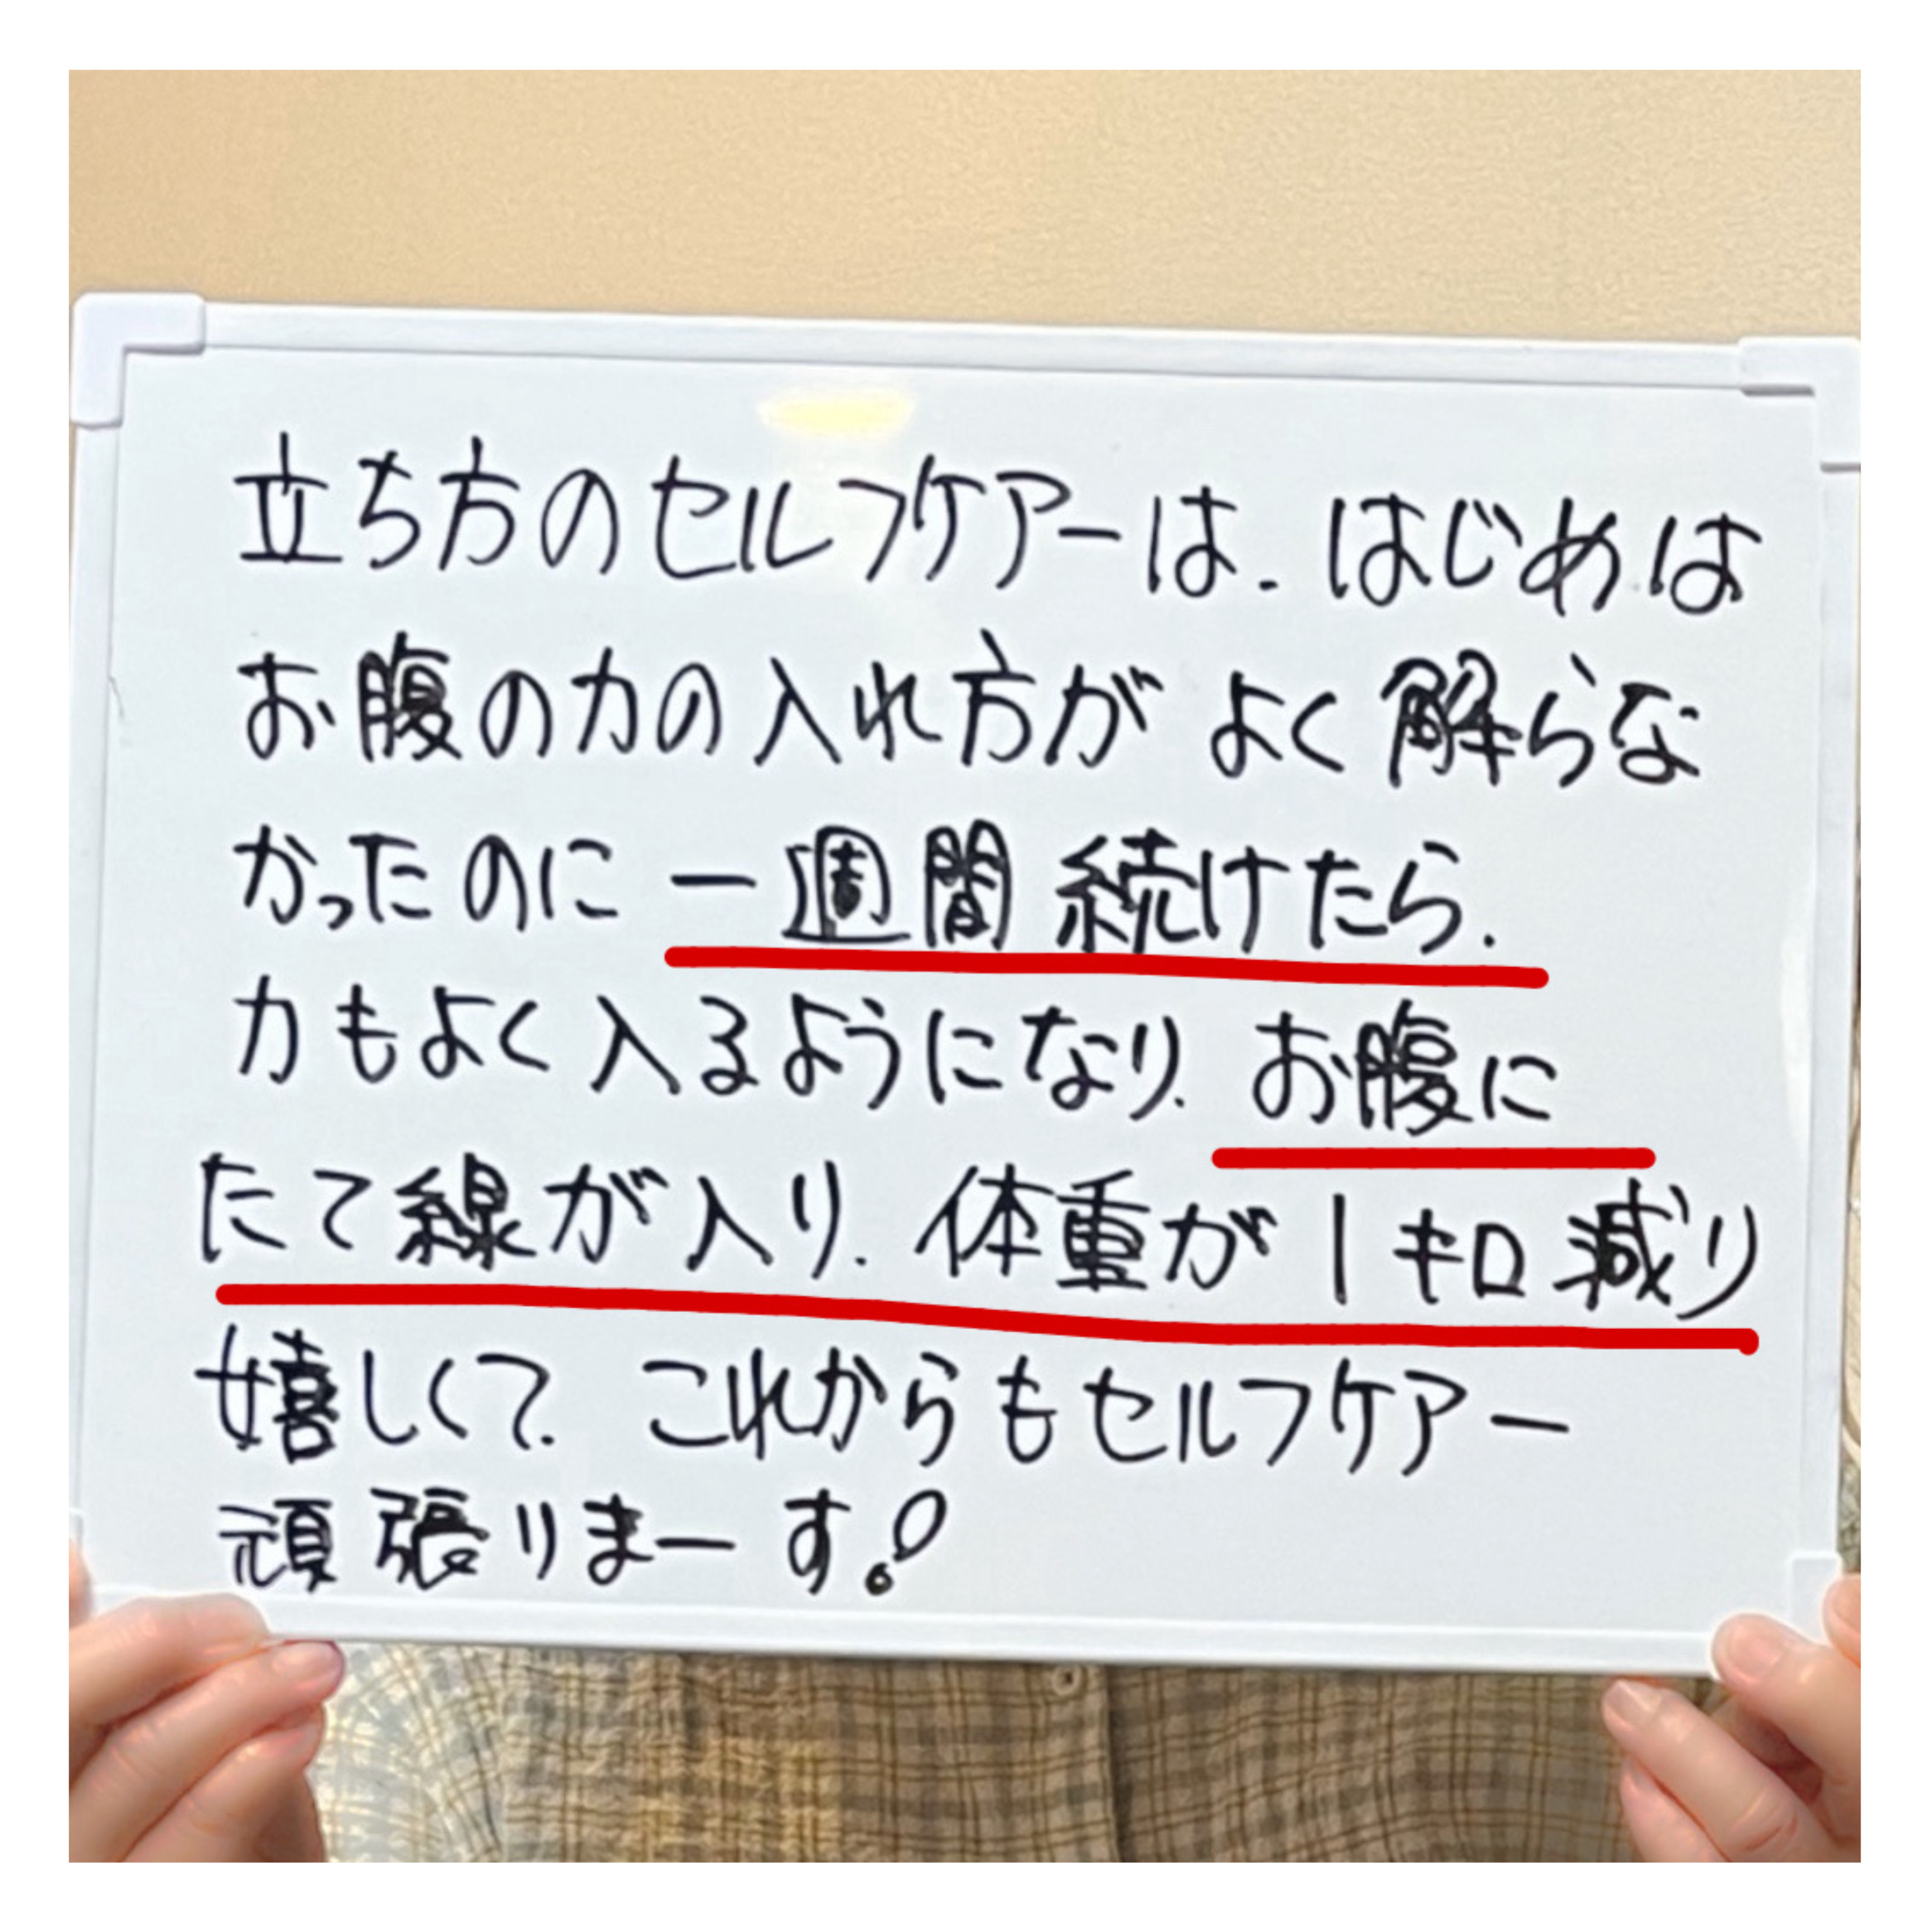 立ち方のセルフケアーは、はじめは
お腹の力の入れ方がよく解らな
かったのに一週間続けたら、
力もよく入るようになり、お腹に
たて線が入り、体重が1キロ減り
嬉しくて、これからもセルフケアー
頑張りまーす!